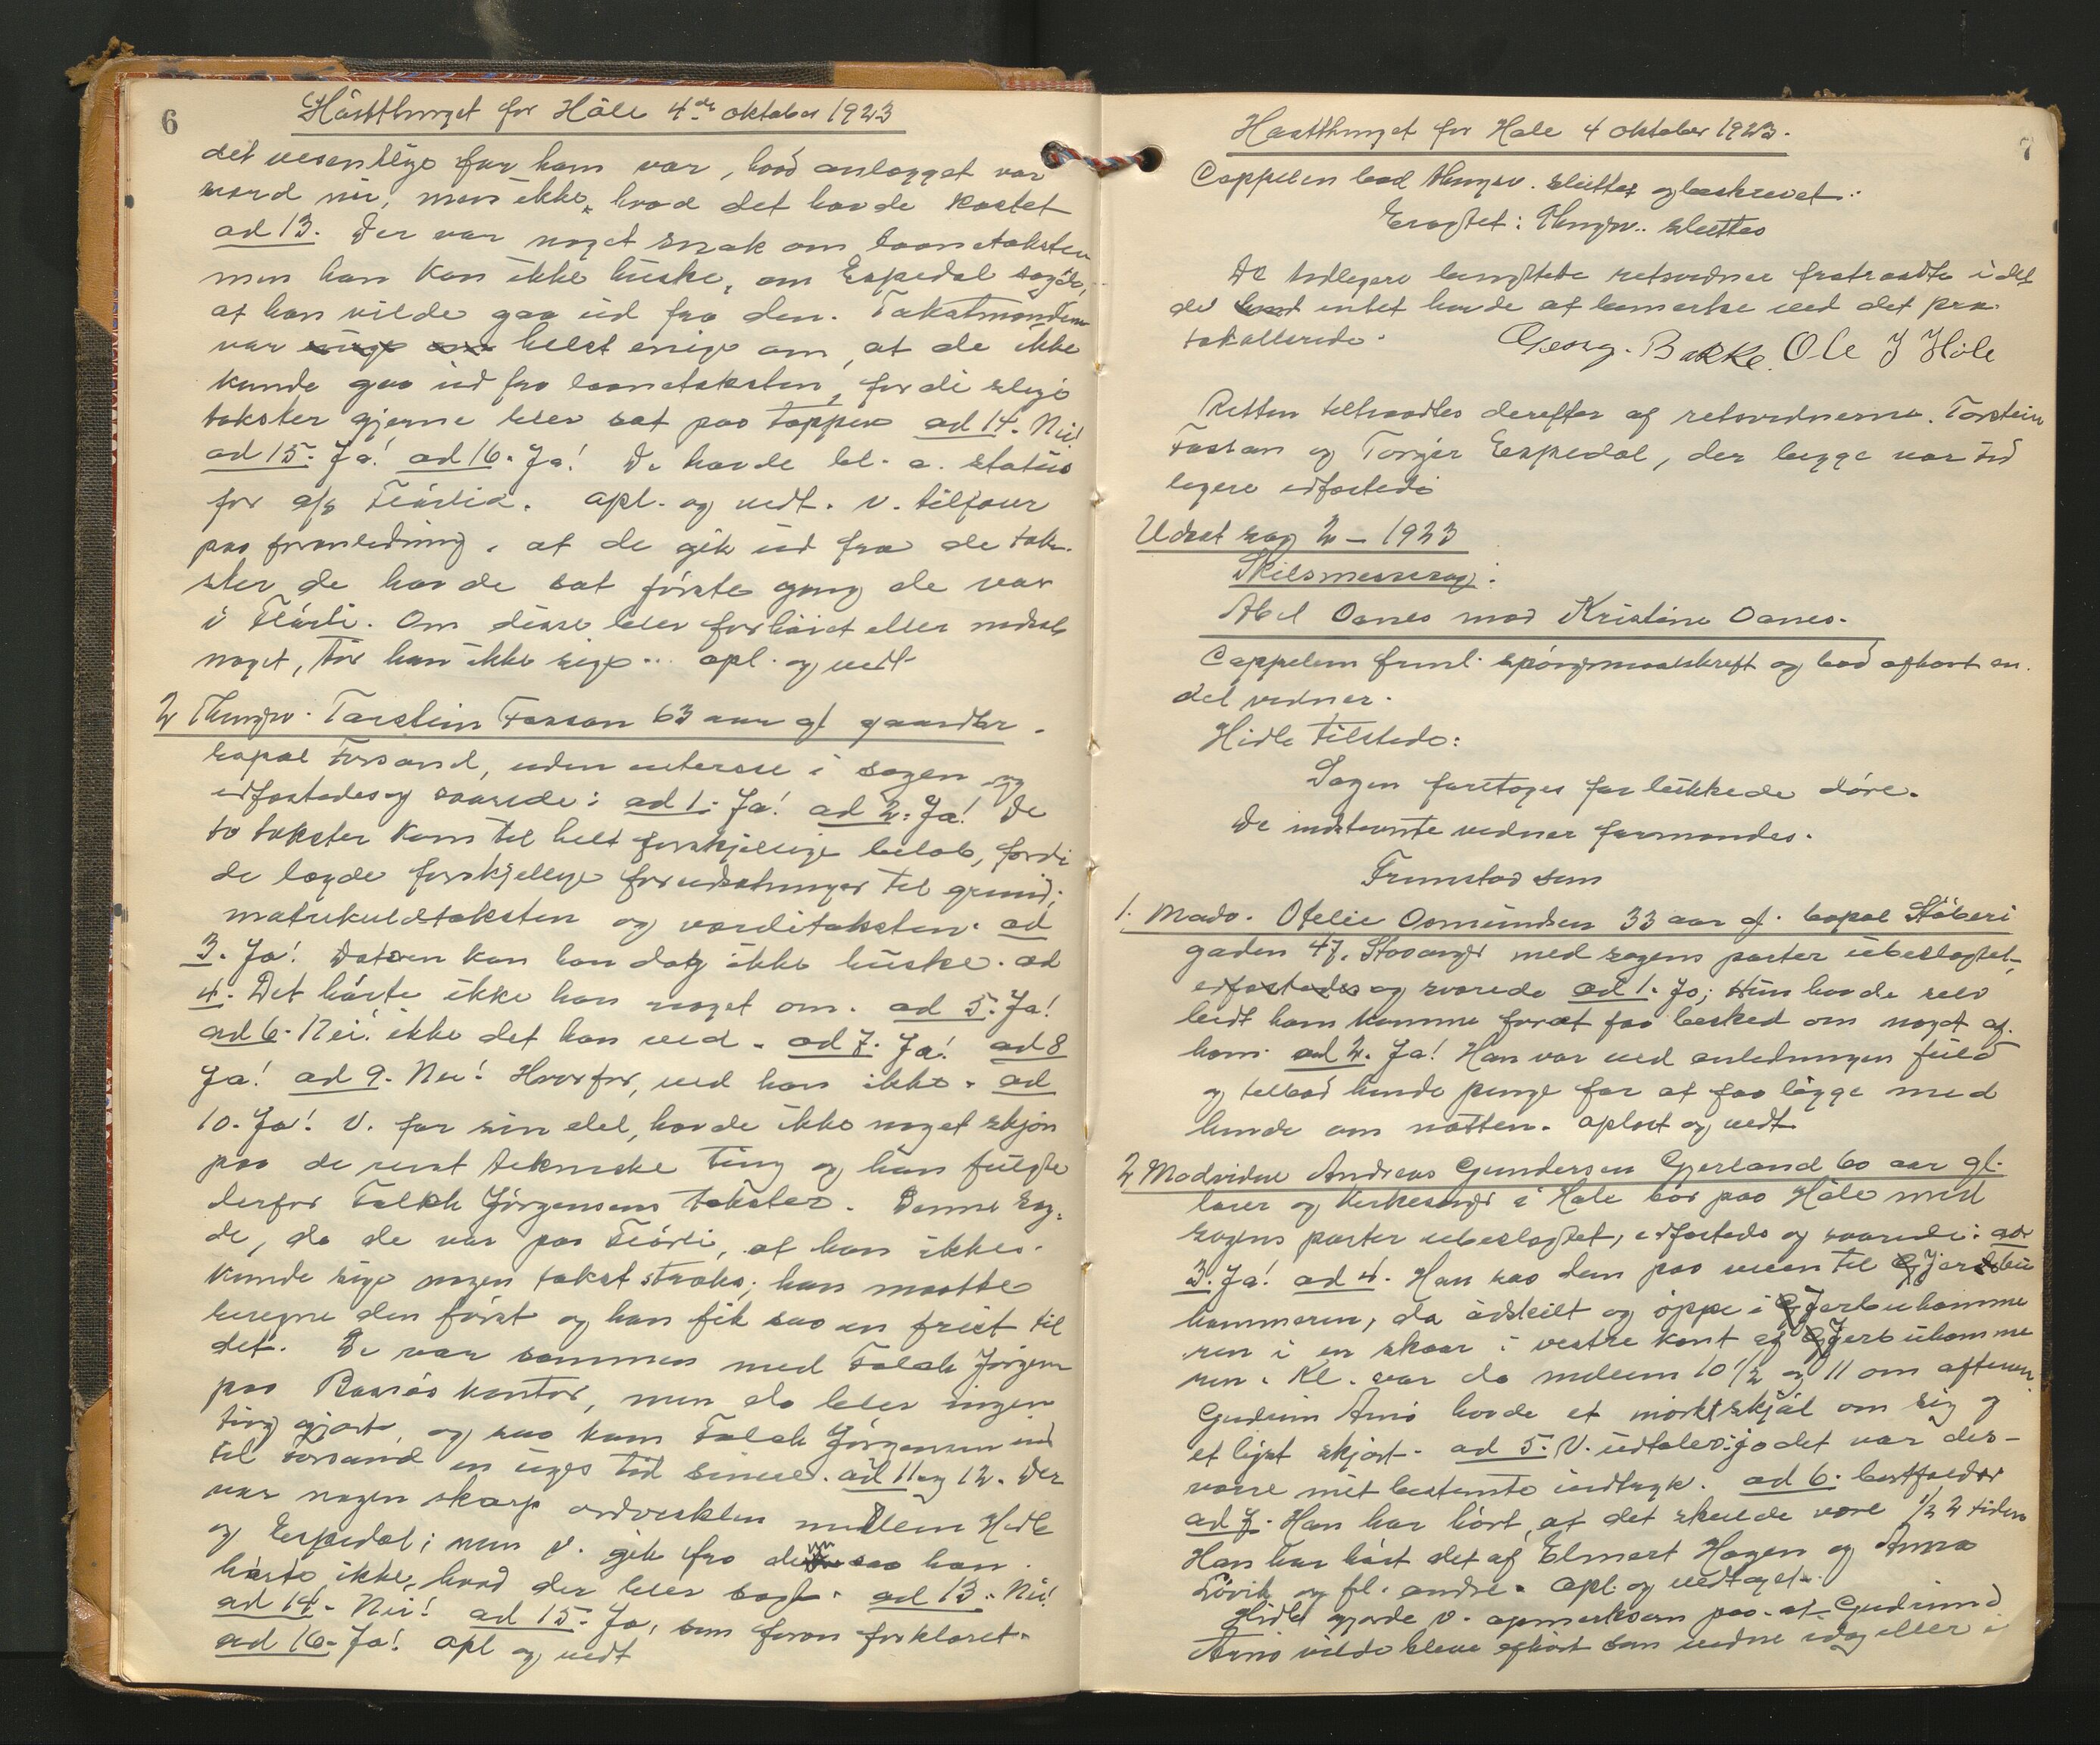 6
Hösttthinget for Höle 4de oktober 1923
det vesentlige for ham var, hvad anlægget var
værd nu, men ikke, hvad det havde kostet
ad 13. Der var noget snak om laanetaksten
men han kan ikke huske, om Espedal sagde,
at han vilde gaa ud fra den. Takstmændene
var helst enige om, at de ikke
kunde gaa ud fra laanetaksten, fordi slige
takster gjerne blev sat paa toppen ad 14. Nei!
ad 15. Ja! ad 16. Ja! De havde bl. a. status
for a/s Fløirlia. opl. og vedt. V. tilføier
paa foranledning, at de gik ud fra de tak-
ster de havde sat første gang de var
i Fløirli. Om disse blev forhøiet eller nedsat
noget, tør han ikke sige. opl. og vedt
2 Thingv. Torstein Fossan 63 aar gl gaardbr.
bopæl Forsand, uden interesse i sagen og
edfæstedes og svarede: ad 1. Ja! ad 2. Ja! De
to takster kom til helt forskjellige beløb, fordi
de lagde forskjellige forudsætninger til grund,
matrikulstaksten og værditaksten. ad
3. Ja! Datoen kan han dog ikke huske. ad
4. Det hørte ikke han noget om. ad 5. Ja!
ad 6. Nei! ikke det han ved. ad 7. Ja! ad 8
Ja! ad 9. Nei! Hvorfor, ved han ikke. ad
10. Ja! V. for sin del, havde ikke noget skjøn
paa de rent tekniske ting og han fulgte
derfor Falck Jørgensens takster. Denne sag-
de, da de var paa Fløirli, at han ikke
kunde sige nogen takst straks; han maatte
beregne den først og han fik saa en frist til
det. De var sammen med Falck Jørgensen
paa kontor, men da blev ingen
ting gjort, og saa kom Falck Jörgensen ind
til Forsand en uges tid senere. ad 11 og 12. Der
var nogen skarp ordveksling mellem Hidle
og Espedal; men V. gik fra dem saa han
hørte ikke, hvad der blev sagt. ad 13. Nei!
ad 14. Nei! ad 15. Ja, som foran forklaret.
ad 16. Ja! opl og vedt
7
Høstthinget for Høle 4 oktober 1923.
Cappelen bad thingsv. sluttet og beskrevet.
Eragtet: Thingsv. sluttes
De tidligere benyttede retsvidner fratraadte idet
de intet havde at bemerke ved det pro-
tokollerede. Georg. Bakke. Ole J Høle
Retten tiltraadtes derefter af retsvidnerne. Torstein
Fossan og Torger Espedal, der begge var tid
ligere edfæstede
Udsat sag 2 – 1923
Skilsmessesag:
Abel Oanes mod Kristine Oanes.
Cappelen freml. spørgsmaalskrift og bad afhørt en
del vidner.
Hidle tilstede:
Sagen foretoges for lukkede døre.
De indstevnte vidner formandes.
Fremstod som
1. Madv. Otelie Osmundsen 33 aar gl. bopæl Støberi
gaden 47. Stavanger med sagens parter ubeslægtet,
edfæstedes og svarede ad 1. Jo; Hun havde selv
bedt ham komme foraat faa besked om noget af
ham. ad 2. Ja! Han var ved anledningen fuld
og tilbød hende penge for at faa ligge med
hende om natten. oplæst og vedt
2 Modvidne Andreas Gundersen Gjerland 60 aar gl.
lærer og kirkesanger i Høle bor paa Høle med
sagens parter ubeslægtet, edfæstedes og svarede: ad
3. Ja! ad 4. Han saa dem paa veien til Gjerdebu
hammeren, da adskilt og oppe i Jerbuhamme
ren i en skaar i vestre kant af Jerbuhamme
ren. Kl. var da mellem 10 1/2 og 11 om aftenen.
Gudrun Arnø havde et mørkt skjal om sig og
et lyst skjørt. ad 5. V. udtaler: jo det var des-
værre mit bestemte indtryk. ad 6. bortfalder
ad 7. Han har hørt, at det skulde være 1/2 2 tiden
Han har hørt det af Elmert Hagen og Anna
Løvik og fl. andre. opl. og vedtaget.
Hidle gjorde V. opmerksom paa at Gudrun
Arnø vilde bleve afhørt som vidne idag eller i